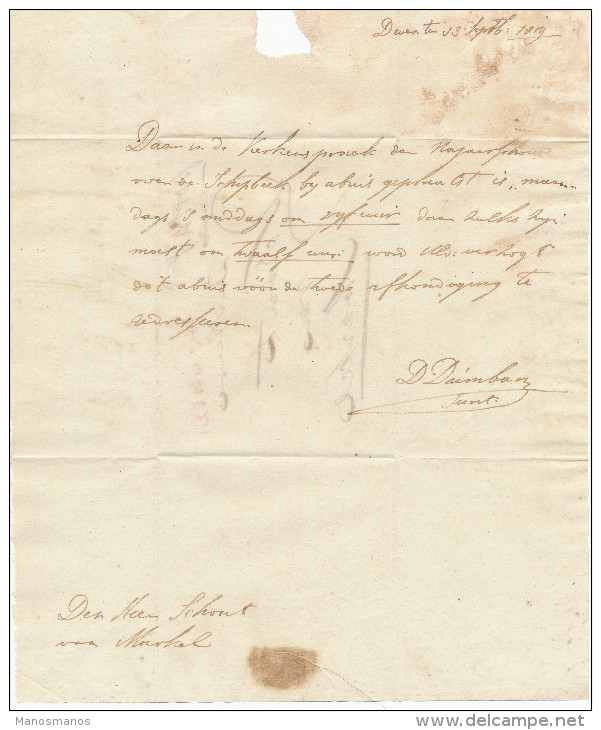 Deventer 13 Septb: 1819
Daar in de Kerkenspraak den Najaarschouw
over de Schipbeek by abuis geplaatst is, maan-
dags s'middags om vyf uur daar zulks zyn
moest om twaalf uur: word UEd: verzogt
dit abuis vóór de twede afkondiging te
redresseeren
D. Daimbar
Den Heer Schout
van Markel
Manosmanos
www.delcampe.net